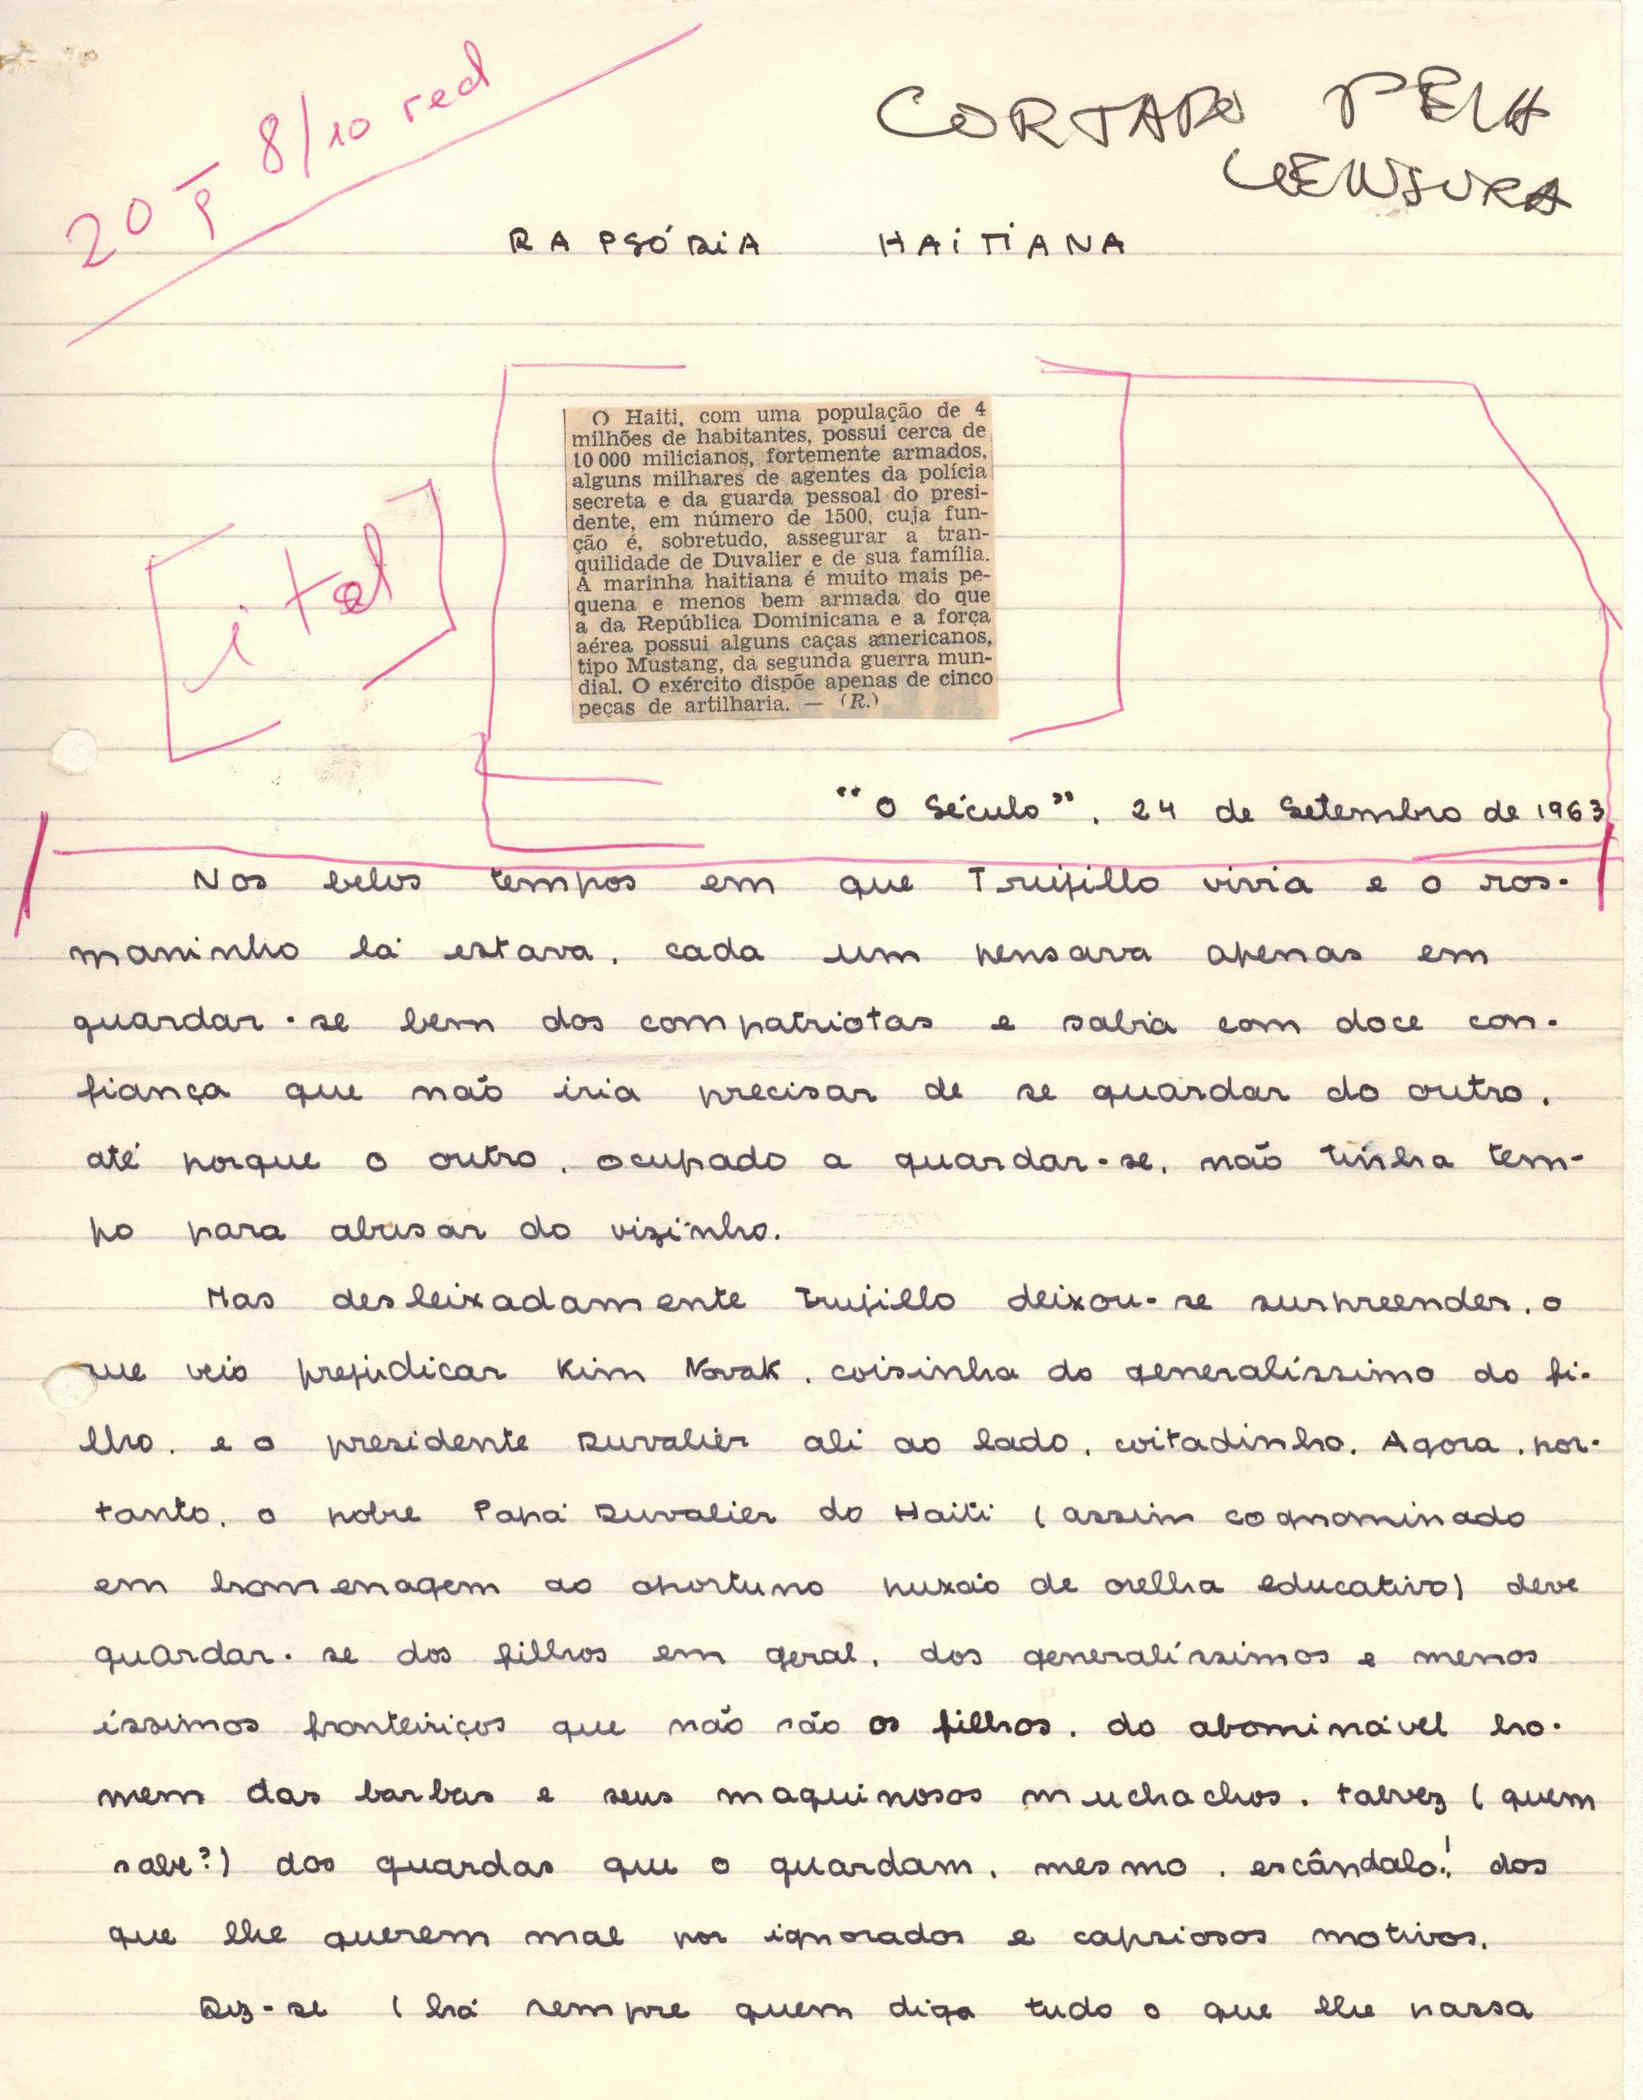 20 p 8/10 red
CORTADO PELA
CENSURA
RAPSÓDIA HAITIANA
O Haiti, com uma população de 4
milhões de habitantes, possui cerca de
10 000 milicianos, fortemente armados,
alguns milhares de agentes da polícia
secreta e da guarda pessoal do presi-
dente, em número de 1500, cuja fun-
ção é, sobretudo, assegurar a tran-
quilidade de Duvalier e de sua família.
A marinha haitiana é muito mais pe-
quena e menos bem armada do que
a da República Dominicana e a força
aérea possui alguns caças americanos,
tipo Mustang, da segunda guerra mun-
dial. O exército dispõe apenas de cinco
peças de artilharia. — (R.)
ital
"O Século", 24 de Setembro de 1963
Nos belos tempos em que Trujillo vivia e o ros-
maninho lá estava, cada um pensava apenas em
guardar-se bem dos compatriotas e sabia com doce con-
fiança que não iria precisar de se guardar do outro,
até porque o outro, ocupado a guardar-se, não tinha tem-
po para abusar do vizinho.
Mas desleixadamente Trujillo deixou-se surpreender, o
que veio prejudicar Kim Novak, coisinha do generalíssimo do fi-
lho, e o presidente Duvalier ali ao lado, coitadinho. Agora, por-
tanto, o pobre Papá Duvalier do Haiti (assim cognominado
em homenagem ao oportuno puxão de orelha educativo) deve
guardar-se dos filhos em geral, dos generalíssimos e menos
íssimos fronteiriços que não são os filhos, do abominável ho-
mem das barbas e seus maquinosos muchachos, talvez (quem
sabe?) dos guardas que o guardam, mesmo, escândalo!, dos
que lhe querem mal por ignorados e capriosos motivos.
Diz-se (há sempre quem diga tudo o que lhe passa